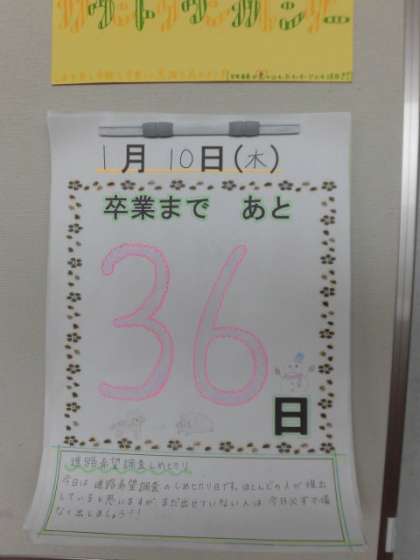 カウントダウンカレンダー
1月10日(木)
卒業まで あと
36
日
進路希望調査しめきり
今日は進路希望調査のしめきり日です。ほとんどの人が提出
していると思いますが、まだ出せていない人は今日必ず
出しましょう!!